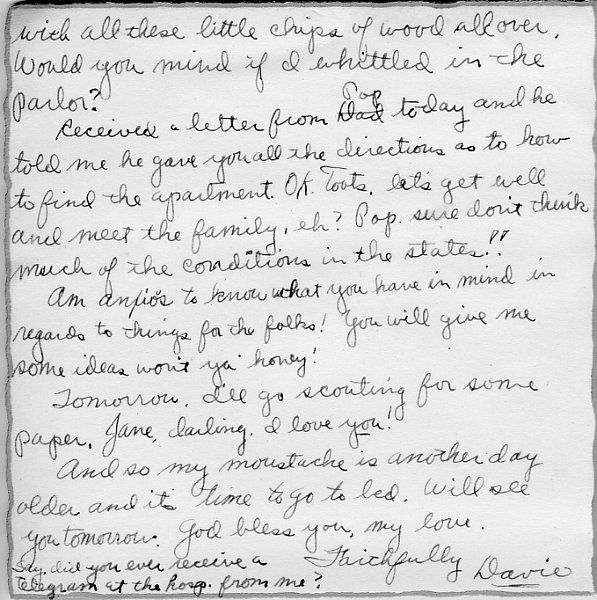 with all these little chips of wood all over.
Would you mind if I whittled in the
parlor?
Pop
Received a letter from Dad today and he
told me he gave you all the directions as to how
to find the apartment. O.K. Toots, let's get well
and meet the family, eh? Pop. sure don't think
much of the conditions in the states!!
Am anxios to know what you have in mind in
regards to things for the folks! You will give me
some ideas won't ya' honey!
Tomorrow. I'll go scouting for some
paper. Jane, darling. I love you!
And so my moustache is another day
older and it's time to go to bed. Will see
you tomorrow. God bless you, my love.
Faithfully
Davie
Say, did you ever receive a
telegram at the hosp. from me?